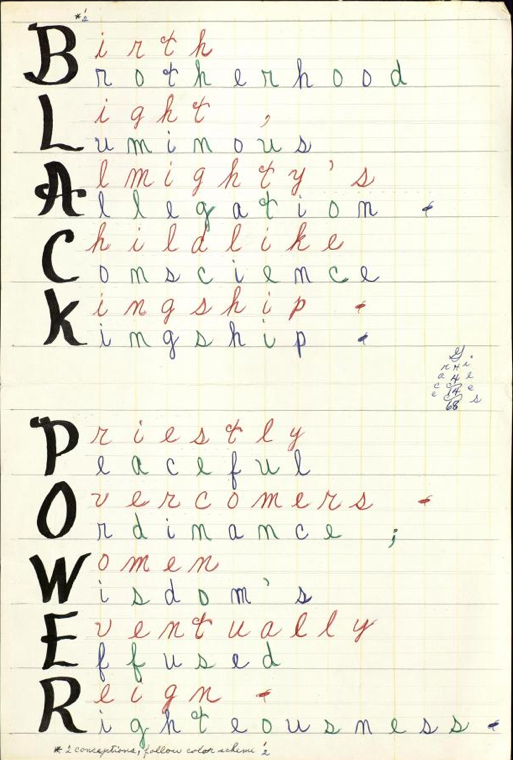 *2
Birth
rotherhood
Light ,
uminous
Almighty's
llegation -
Childlike
onscience
Kingship -
ingship -
4
14
68
Priestly
eaceful
Overcomers -
rdinance ;
Women
isdom's
Eventually
ffused
Reign -
ighteousness -
* 2 conceptions, follow color scheme 2